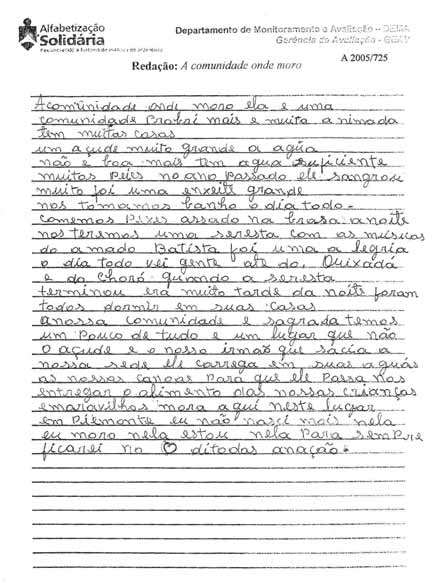 Alfabetização
Solidária
Departamento de Monitoramento e Avaliação - DEMA
Gerência de Avaliação - GEAV
A 2005/725
Redação: A comunidade onde moro
A comunidade onde moro ela e uma
comunidade mais e muito animada
tem muitas casas
um açude muito grande a agúa
não e boa mais tem agua suficiente
muitos peies no ano passado ele sangrou
muito foi uma grande
nos tomamos banho o dia todo.
comemos Pexes assado na brasa anoite
nos teremos uma seresta com as músicas
do amado Batista foi uma a legria
o dia todo vei gente ate do, Quixadá
e do Choró quando a seresta
terminou era muito tarde da noite foram
todos dormir em suas casas
anossa comunidade e sagrada temos
um Pouco de tudo e um lugar que não
o açude e o nosso irmão que sácia a
nossa sede ele carrega em suas aguás
as nossas canoas Para que ele Possa nos
entregar o alimento das nossas crianças
emaravilhos mora aqui neste lugar
em Piemonte eu não nasci mais nela
eu moro nela estou nela Para sempre
ficarei no ditodas anação.